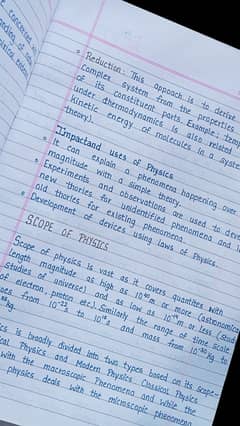 Concerned wi
nding of
• Reduction: This approach is to derive
complex system from the properties
of its constituent parts. Example; temp
under thermodynamics is also related
kinetic energy of molecules in a syste
theory).
Impactand uses of Physics
• It can explain a phenomena happening over
magnitude with a simple theory.
• Experiments and observations are used to deve
new thories for unidentified phenomena and
old thories for existing phenomena.
• Development of devices using laws of Physics.
SCOPE OF PHYSICS
Scope of physics is vast as it covers quantites with
length magnitude as high as 10⁴⁰m or more (astronomica
studies of universe) and as low as 10⁻¹⁴m or less (stud
of electron, proton etc). Similarly the range of time scale
oes from 10⁻²²s to 10¹⁸s and mass from 10⁻³⁰kg to
⁵⁵kg.
ics is broadly divided into two types based on its scope-
cal Physics and Modern Physics. Classical Physics
with the macroscopic Phenomena and while the
physics deals with the microscopic phenomena